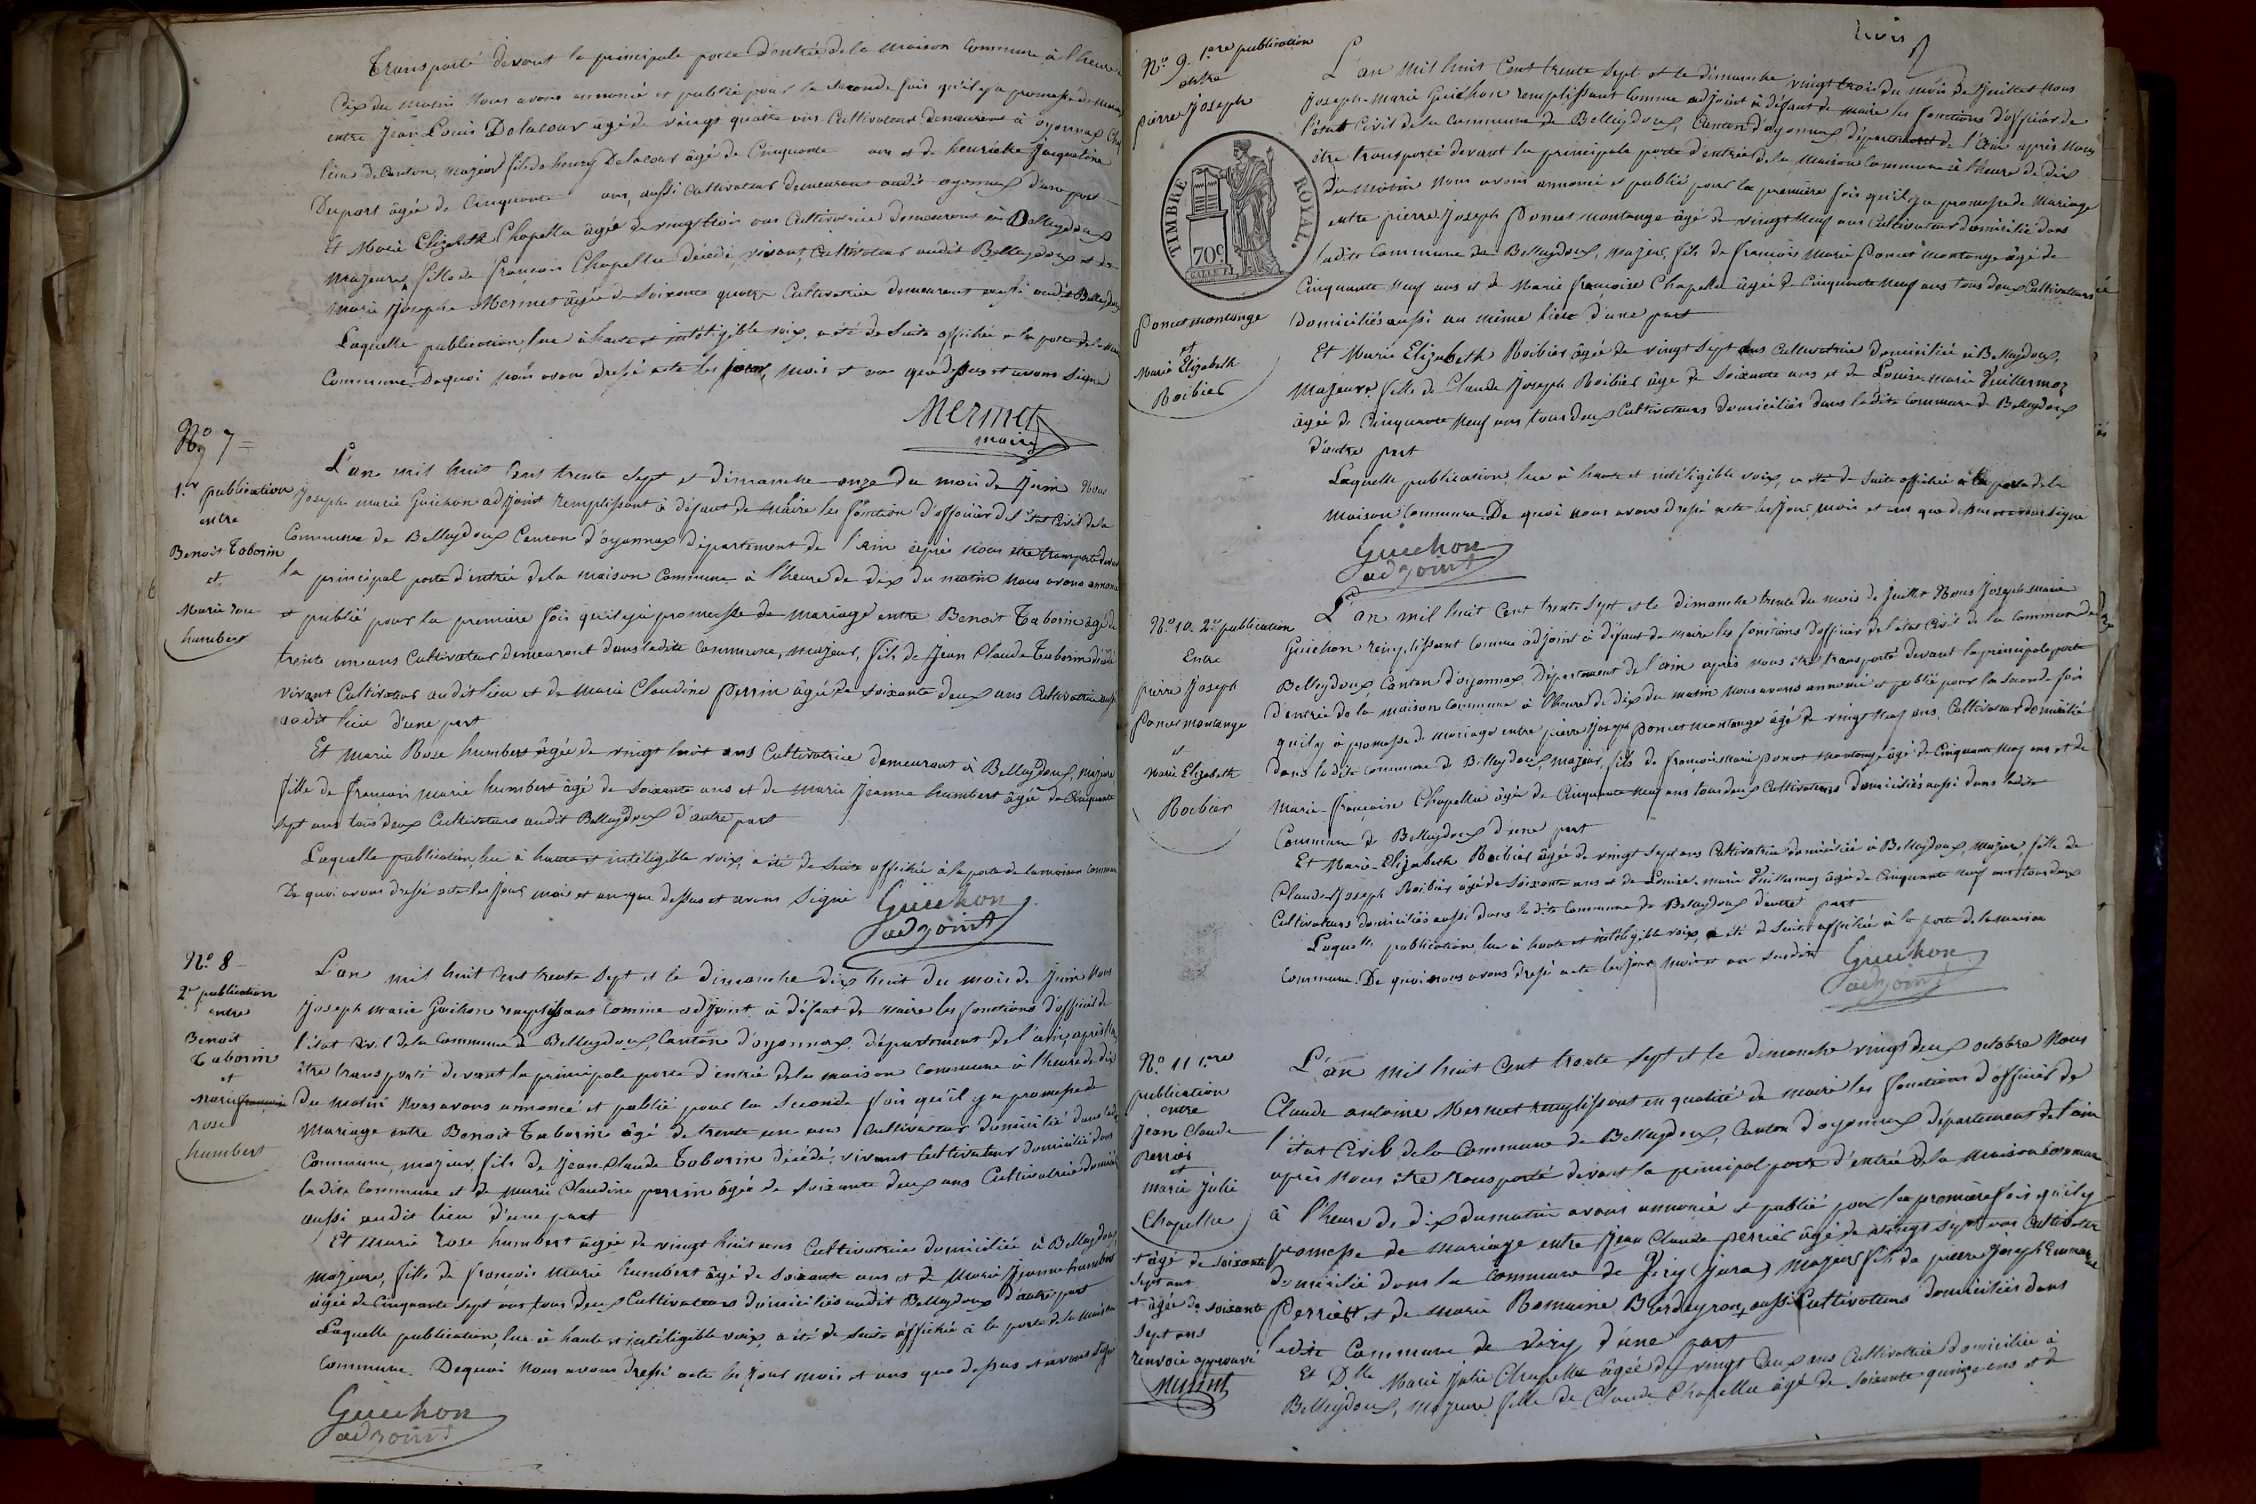 Transporté devant la principale porte d'entrée de la maison Commune à l'heure de
dix du matin Nous avons annoncé et publié pour la seconde fois qu'il y a promesse de mariage
entre Jean Louis Delacour âgé de vingt quatre ans Cultivateur demeurant à oyonnax Chef
lieu de Canton, majeur fils de henry Delacour âgé de Cinquante ans et de henriette Jacqueline
Dupart âgée de Cinquante ans, aussi Cultivateurs demeurant audit oyonnax d'une part
Et Marie Elizabeth Chapellu âgée de vingt trois ans Cultivatrice demeurant à Belleydoux
majeure, fille de françois Chapellu décédé, vivant, Cultivateur audit Belleydoux et de
marie Josephe Mermet âgée de Soixante quatre Cultivatrice demeurant aussi audit Belleydoux
Laquelle publication, lue à haute et intéligible voix, a été de suite affichée à la porte de la maison
Commune. De quoi nous avons dressé acte les jour, mois et an que dessus et avons signé
Mermet
maire
N° 7
1.re publication
entre
Benoit Taborin
et
Marie rose
humbert
L'an mil huit Cent trente sept et dimanche onze du mois de Juin Nous
Joseph marie Guichon adjoint remplissant à défaut de maire les fonction d'officier de l'état Civil de la
Commune de Belleydoux Canton d'oyonnax département de l'ain après nous être transporté devant
la principal porte d'entrée de la maison Commune à l'heure de dix du matin nous avons annoncé
et publié pour la première fois qu'il y a promesse de mariage entre Benoit Taborin âgé de
trente un ans Cultivateur demeurant dans ladite Commune, majeur, fils de Jean Claude Taborin décédé
vivant Cultivateur audit lieu et de Marie Claudine perrin âgée de soixante deux ans Cultivatrice aussi
audit lieu d'une part
Et Marie Rose humbert âgée de vingt huit ans Cultivatrice demeurant à Belleydoux, majeure
fille de françois marie humbert âgé de soixante ans et de marie Jeanne humbert âgée de Cinquante
sept ans tous deux Cultivateurs audit Belleydoux d'autre part
Laquelle publication, lue à haute et intéligible voix, a été de suite affichée à la porte de la maison commune
De quoi avons dressé acte les jour mois et an que dessus et avons signé
Guichon
adjoint
N° 8
2.e publication
entre
Benoit
Taborin
et
Marie françoise
rose
humbert
L'an mil huit cent trente sept et le dimanche dix huit du mois de Juin Nous
Joseph marie Guichon remplissant comme adjoint à défaut de maire les fonctions d'officier de
l'état Civil de la Commune de Belleydoux, Canton d'oyonnax, département de l'ain, après nous
être transporté devant la principale porte d'entrée de la maison commune à l'heure de dix
du matin Nous avons annoncé et publié pour la seconde fois qu'il y a promesse de
Mariage entre Benoit Taborin âgé de trente un ans Cultivateur domicilié dans ladite
Commune, majeur, fils de Jean Claude Taborin décédé, vivant Cultivateur domicilié dans
ladite Commune et de marie Claudine perrin âgée de soixante deux ans Cultivatrice domiciliée
aussi audit lieu d'une part
Et marie rose humbert âgée de vingt huit ans Cultivatrice domiciliée à Belleydoux
majeure, fille de françois marie humbert âgé de soixante ans et de marie Jeanne humbert
âgée de Cinquante sept ans tous deux Cultivateurs domiciliés audit Belleydoux d'autre part
Laquelle publication, lue à haute et intéligible voix, a été de suite affichée à la porte de la maison
Commune. De quoi nous avons dressé acte les jour mois et ans que dessus et avons signé
Guichon
adjoint
trois
N° 9. 1.ere publication
entre
pierre Joseph
TIMBRE ROYAL.
70c.
poncet montange
et
Marie Elizabeth
Roibier
L'an mil huit Cent trente sept et le dimanche vingt trois du mois de Juillet Nous
Joseph-Marie Guichon remplissant Comme adjoint à défaut de maire les fonctions d'officier de
l'état Civil de la Commune de Belleydoux, Canton d'oyonnax département de l'ain après nous
être transporté devant la principale porte d'entrée de la maison Commune à l'heure de dix
du matin Nous avons annoncé et publié pour la première fois qu'il y a promesse de mariage
entre pierre Joseph poncet montange âgé de vingt neuf ans Cultivateur domicilié dans
ladite Commune de Belleydoux, majeur, fils de françois Marie poncet montange âgé de
Cinquante neuf ans et de Marie françoise Chapellu âgée de Cinquante neuf ans tous deux Cultivateurs
domiciliés aussi au même lieu d'une part
Et Marie Elizabeth Roibier âgée de vingt sept ans cultivatrice domiciliée à Belleydoux,
Majeure, fille de Claude Joseph Roibier âgé de soixante ans et de Louise Marie Vuillermoz
âgée de Cinquante neuf ans tous deux Cultivateurs domiciliés dans ladite Commune de Belleydoux
d'autre part
Laquelle publication lue à haute et intéligible voix, a été de suite affichée à la porte de la
maison Commune. De quoi nous avons dressé acte les jour, mois et an que dessus et avons signé
Guichon
adjoint
N° 10. 2.e publication
Entre
pierre Joseph
poncet montange
et
Marie Elizabeth
Roibier
L'an mil huit Cent trente sept et le dimanche trente du mois de Juillet Nous Joseph Marie
Guichon remplissant comme adjoint à défaut de maire les fonctions d'officier de l'état Civil de la Commune de
Belleydoux Canton d'oyonnax, Département de l'ain après nous être transporté devant la principale porte
d'entrée de la maison Commune à l'heure de dix du matin Nous avons annoncé et publié pour la seconde fois
qu'il y à promesse de mariage entre pierre Joseph poncet montange âgé de vingt neuf ans, Cultivateur domicilié
dans ladite Commune de Belleydoux, majeur, fils de françois Marie poncet montange âgé de Cinquante neuf ans et de
Marie-françoise Chapellu âgée de Cinquante neuf ans tous deux Cultivateurs domiciliés aussi dans ladite
Commune de Belleydoux d'une part
Et Marie-Elizabeth Roibier âgée de vingt sept ans Cultivatrice domiciliée à Belleydoux, majeure, fille de
Claude-Joseph Roibier âgé de soixante ans et de Louise-marie Vuillermoz âgée de Cinquante neuf ans tous deux
Cultivateurs domiciliés aussi dans ladite Commune de Belleydoux d'autre part
Laquelle publication lue à haute et intéligible voix, a été de suite affichée à la porte de la maison
Commune. De quoi nous avons dressé acte les jour, mois et an susdit
Guichon
adjoint
N° 11 1.ere
publication
entre
Jean Claude
perrier
et
marie Julie
Chapellu
+ âgé de soixante
sept ans
+ âgée de soixante
sept ans
renvoie approuvé
L'an mil huit Cent trente sept et le dimanche vingt deux octobre Nous
Claude antoine Mermet remplissant en qualité de maire les fonctions d'officier de
l'état Civil de la Commune de Belleydoux, Canton d'oyonnax département de l'ain
après nous être transporté devant la principal porte d'entrée de la maison Commune
à l'heure de dix du matin avons annoncé et publié pour la première fois qu'il y
promesse de mariage entre Jean Claude perrier âgé de vingt sept ans Cultivateur
domicilié dans la Commune de Viry (Jura) majeur fils de pierre Joseph
perrier et de marie Romaine Burdeyron, aussi Cultivateurs domiciliés dans
ladite Commune de Viry d'une part
Et Dlle Marie Julie Chapellu âgée de vingt deux ans Cultivatrice domiciliée à
Belleydoux, majeure fille de Claude Chapellu âgé de soixante quinze ans et de